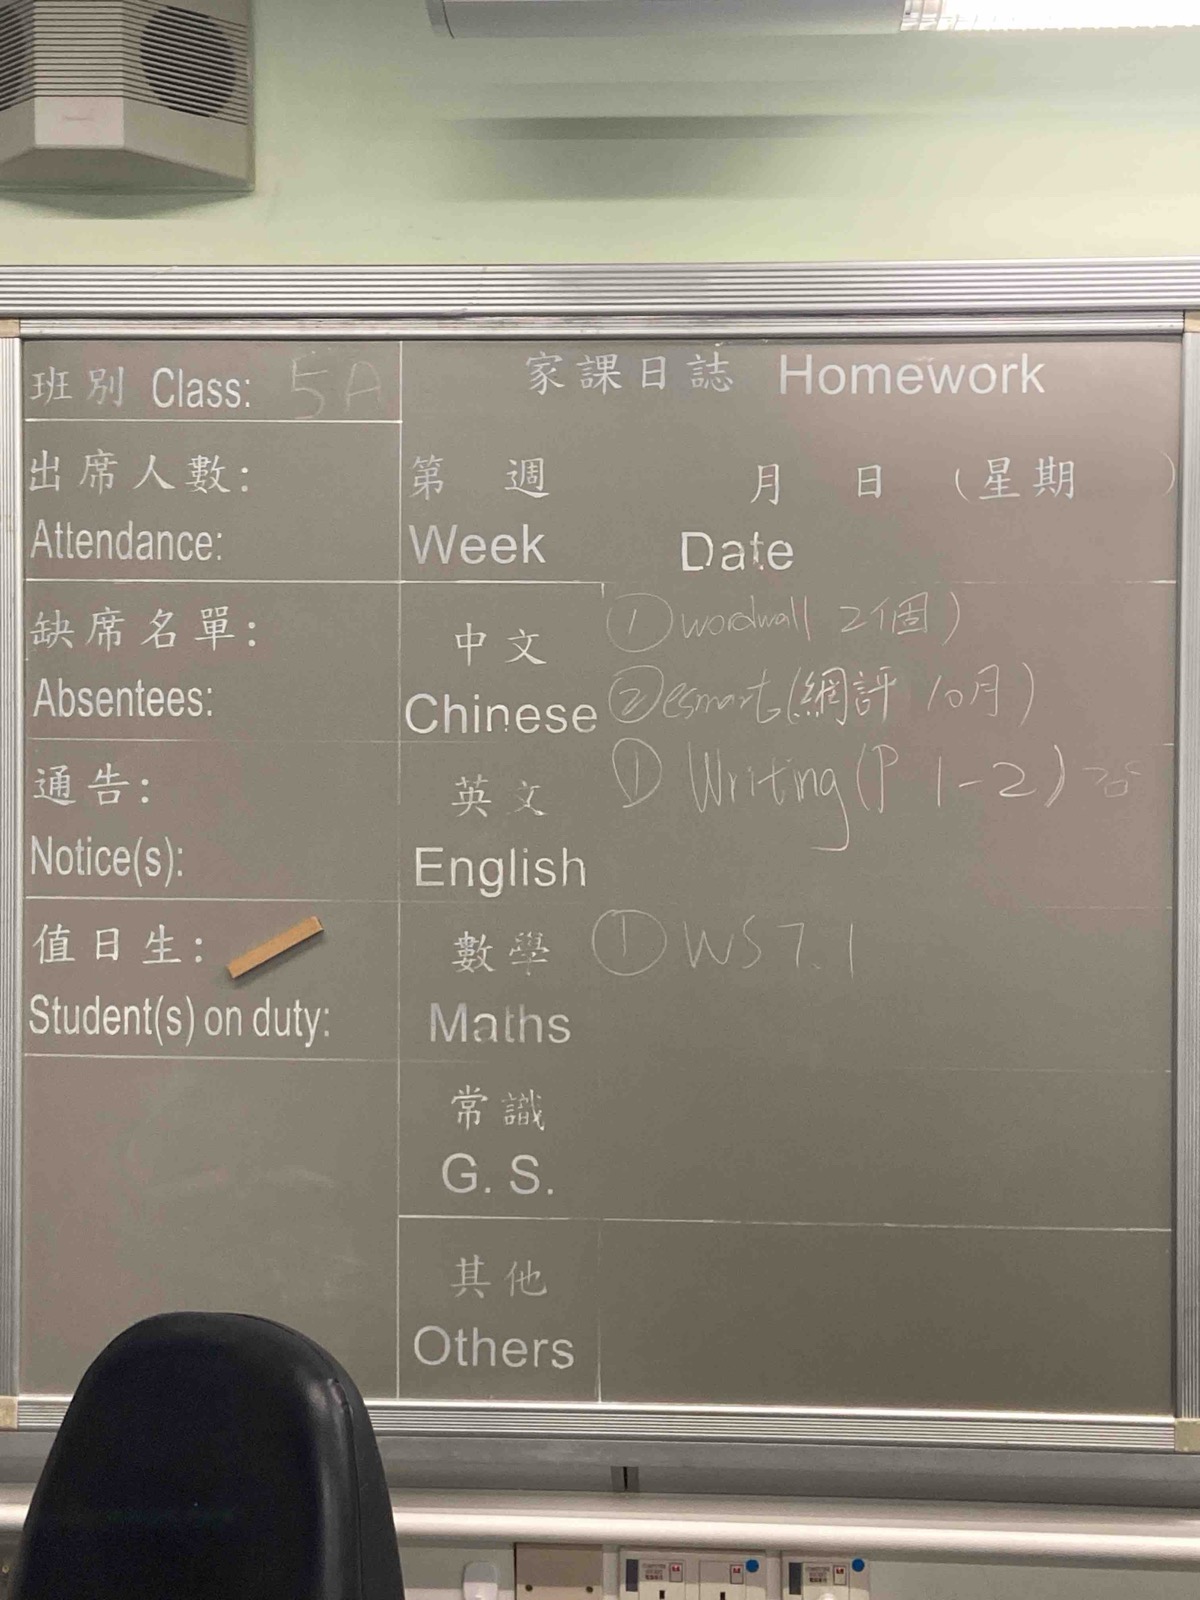 班別 Class: 5A
家課日誌 Homework
出席人數:
Attendance:
第 週 月 日 (星期 )
Week Date
缺席名單:
Absentees:
中文
Chinese
① wordwall 2個)
② esmart (網評 10月)
通告:
Notice(s):
英文
English
① Writing (P 1-2)
值日生:
Student(s) on duty:
數學
Maths
① WS 7.1
常識
G. S.
其他
Others